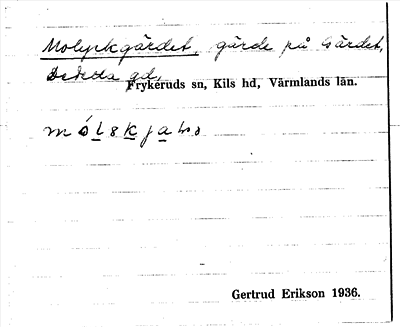 Molyckgärdet, gärde på Gärdet,
gd,
Frykeruds sn, Kils hd, Värmlands län.
Gertrud Erikson 1936.